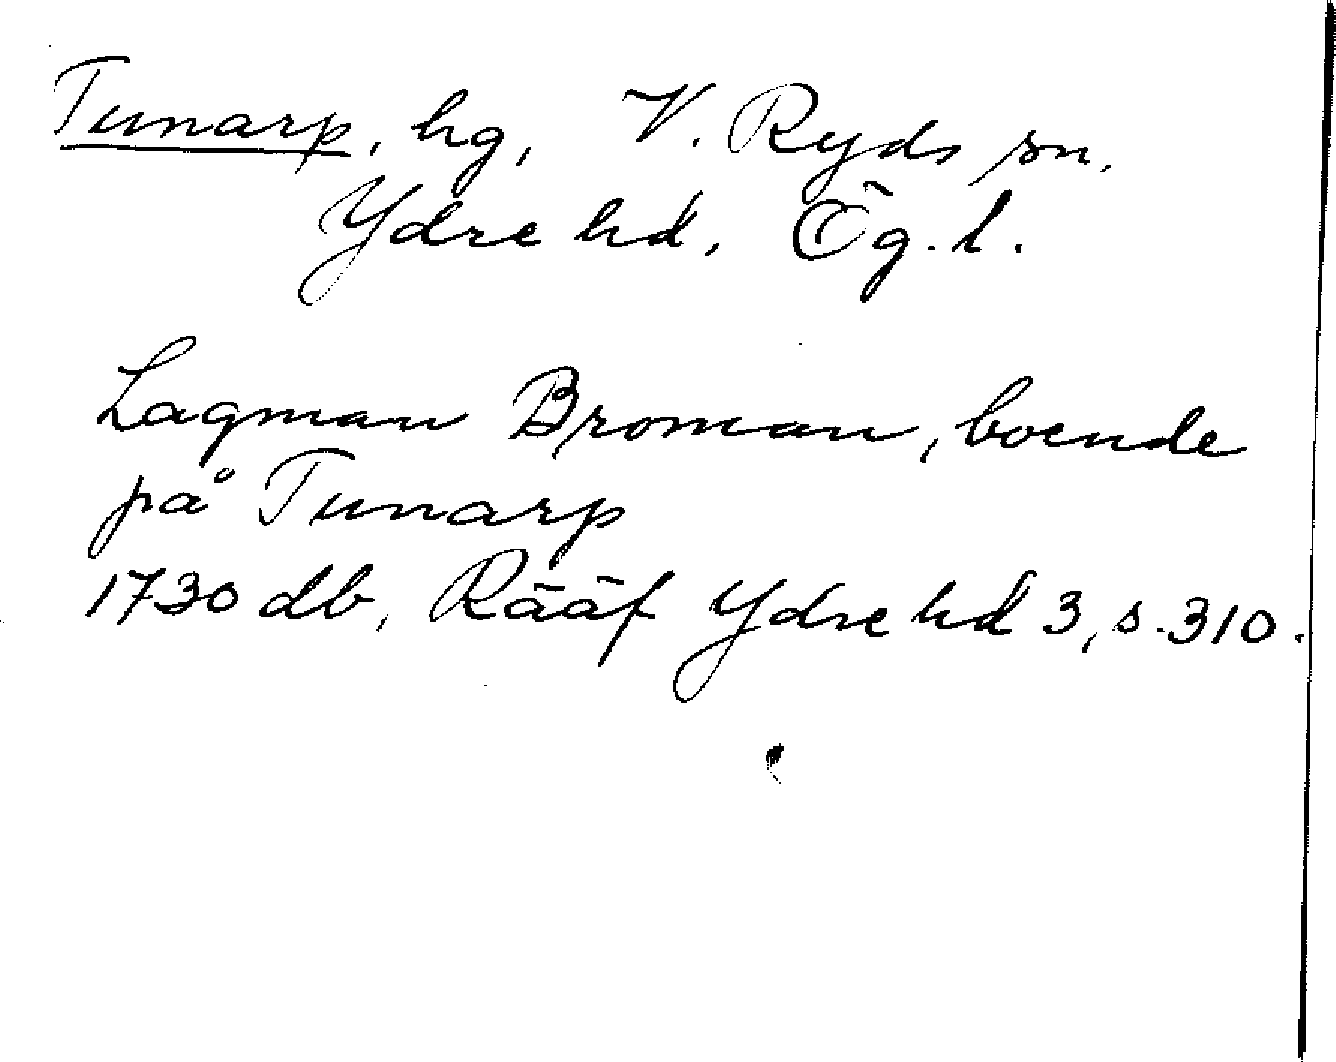 Tunarp, hg, V. Ryds sn.
Ydre hd, Ög. l.
Lagman Broman, boende
på Tunarp
1730 db, Rääf Ydre hd 3, s. 310.